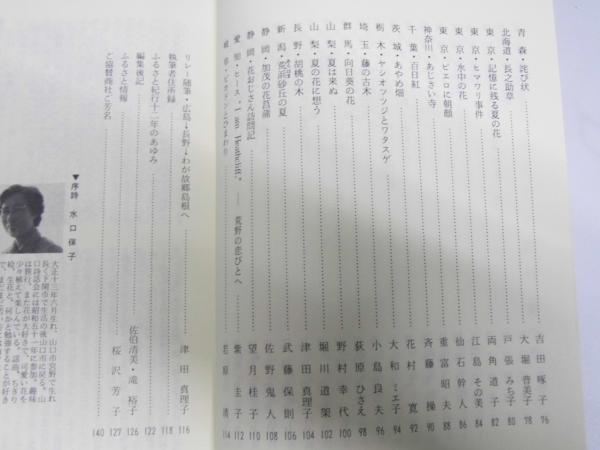 青森・詫び状 吉田啄子 76
北海道・長之助草 大堀普美子 78
東京・記憶に残る夏の花 戸張みち子 80
東京・ヒマワリ事件 両角道子 82
東京・水中の花 江島その美 84
東京・ピエロに朝顔 仙石幹人 86
神奈川・あじさい寺 重富昭夫 88
千葉・百日紅 斉藤操 90
茨城・あやめ畑 花村寛 92
栃木・ヤシオツツジとワタスゲ 大和ミエ子 94
埼玉・藤の古木 小島良夫 96
群馬・向日葵の花 荻原ひさえ 98
山梨・夏は来ぬ 野村幸代 100
山梨・夏の花に想う 堀川道架 102
長野・胡桃の木 津田真理子 104
新潟・荒浜砂丘の夏 武藤保則 106
静岡・加茂の花菖蒲 佐野鬼人 108
静岡・花おじさん訪問記 望月桂子 110
愛知・ヒース・"I am Heathcliff" ── 荒野の恋びとへ 紫圭子 112
114
リレー随筆・広島→長野→わが故郷島根へ 津田真理子 116
執筆者住所録 118
ふるさと紀行十二年のあゆみ 122
編集後記 佐伯清美・滝裕子 126
ふるさと情報 桜沢芳子 127
ご協賛商社ご芳名 140
▼序詩 水口保子
大正十三年六月生れ、山口市宮野で生れ
長く下関市で生活の後山口市に戻る。山
口詩話会には昭和五十一年に参加。趣味
は旅行。また花が大好きで、可愛い花を
少々植えて楽しんでいる。謡、ちぎり
絵、生花と、何かと勉強することが好き